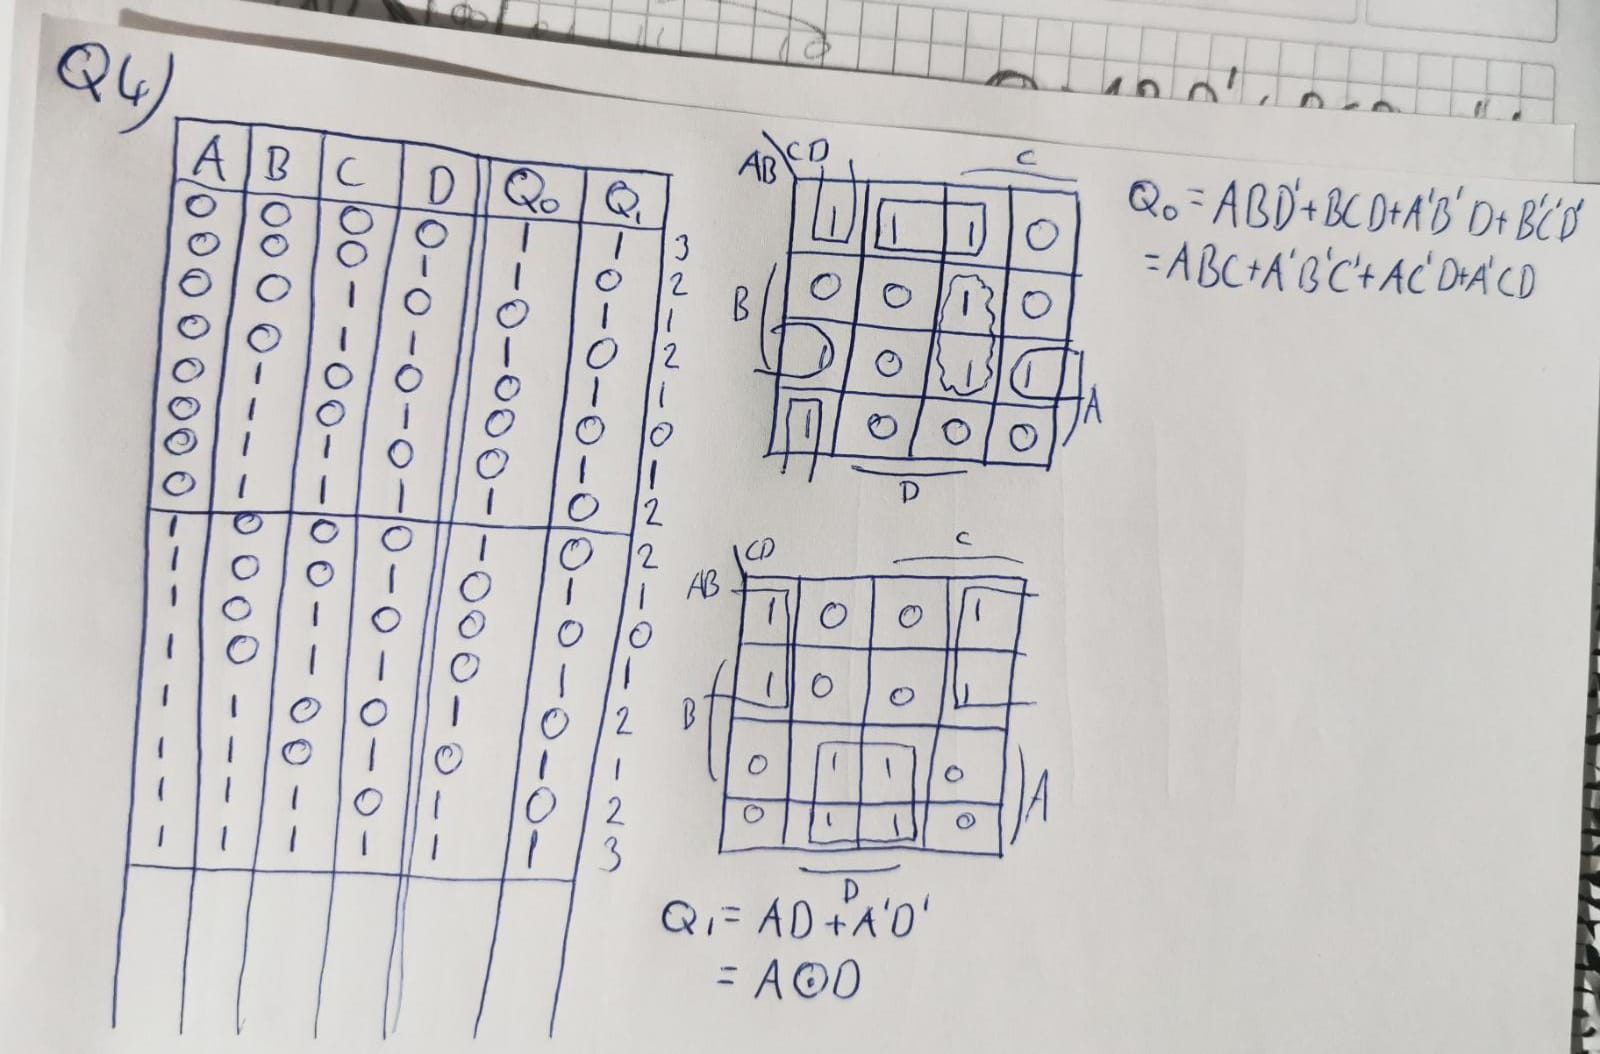 Q4)
A B C D Q₀ Q₁
0 0 0 0 1 1 3
0 0 0 1 1 0 2
0 0 1 0 0 1 1
0 0 1 1 1 0 2
0 1 0 0 0 1 1
0 1 0 1 0 0 0
0 1 1 0 0 1 1
0 1 1 1 1 0 2
1 0 0 0 1 0 2
1 0 0 1 0 1 1
1 0 1 0 0 0 0
1 0 1 1 0 1 1
1 1 0 0 1 0 2
1 1 0 1 0 1 1
1 1 1 0 1 0 2
1 1 1 1 1 1 3
AB\CD C
1 1 1 0
B 0 0 1 0
1 0 1 1
1 0 0 0 A
D
Q₀ = ABD' + BCD + A'B'D + B'C'D'
= ABC + A'B'C' + AC'D' + A'CD
AB\CD C
1 0 0 1
B 1 0 0 1
0 1 1 0
0 1 1 0 A
D
Q₁ = AD + A'D'
= A⊙D